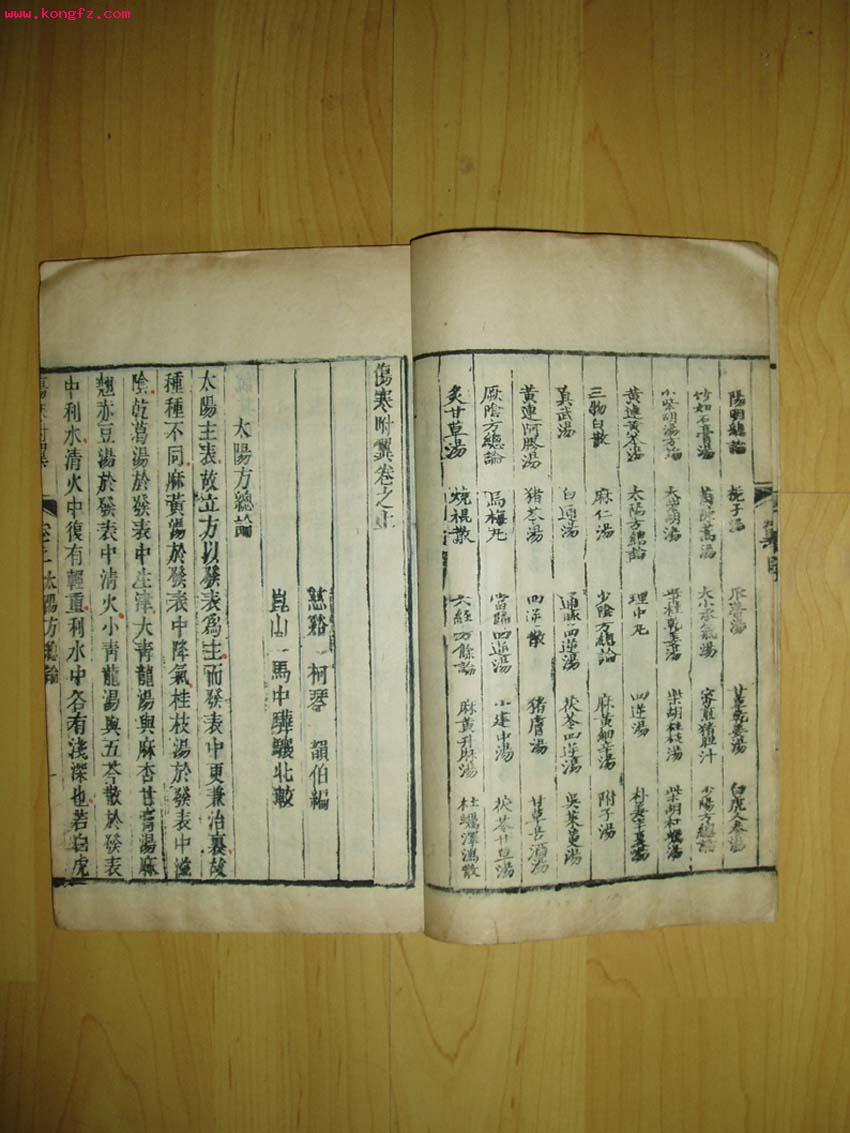 www.kongfz.com
陽明總論 梔子湯 甘草乾姜湯 白虎人參湯
竹如石膏湯 大小承氣湯 蜜煎猪胆汁 少陽方總論
小柴胡湯方論 大柴胡湯 柴桂乾姜湯 柴胡桂枝湯
黃連黃芩湯 太陽方總論 理中丸 四逆湯
三物白散 麻仁湯 少陰方總論 麻黃細辛湯 附子湯
真武湯 白通湯 通脉四逆湯 茯苓四逆湯 吳茱萸湯
黃連阿膠湯 猪苓湯 四逆散 猪膚湯 甘草苦酒湯
厥陰方總論 烏梅丸 當歸四逆湯 小建中湯 茯苓甘草湯
炙甘草湯 燒裩散 六經方餘論 麻黃升麻湯 牡蠣澤瀉散
傷寒附翼卷之上
慈谿 柯琴 韻伯編
崑山 馬中驊驤北較
太陽方總論
太陽主表故立方以發表爲主而發表中更兼治裏故
種種不同麻黃湯於發表中降氣桂枝湯於發表中滋
陰乾葛湯於發表中生津大青龍湯與麻杏甘膏湯麻
翹赤豆湯於發表中清火小青龍湯與五苓散於發表
中利水清火中復有輕重利水中各有淺深也若白虎
傷寒附翼 卷上 太陽方總論 一